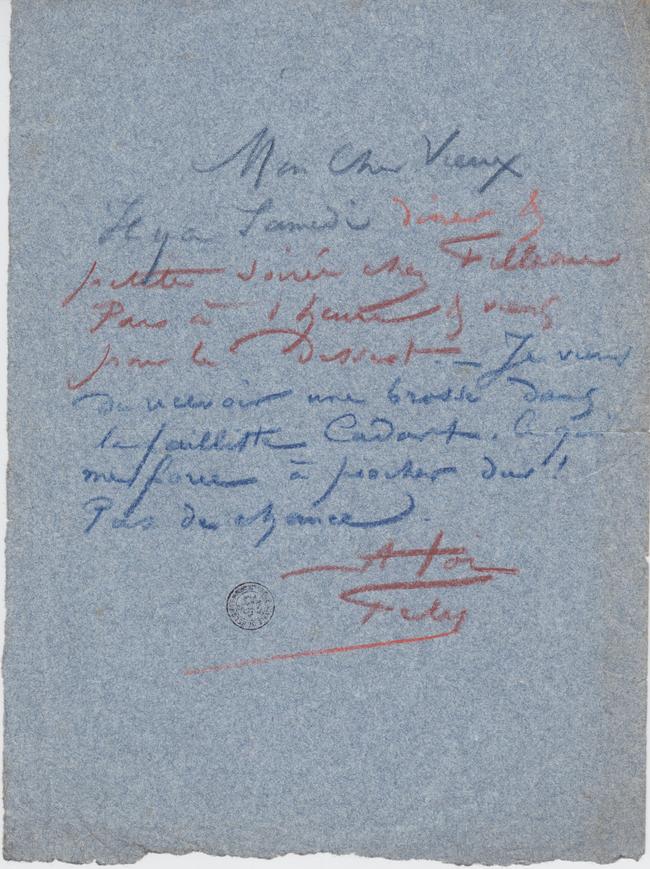 Mon Cher Vieux
Il y a Samedi diner &
petite soirée chez
Pars à 1 heure & viens
pour le Dessert. — Je viens
de recevoir une brosse dans
la faillitte Cadart. Ce qui
me force à piocher dur!
Pas de chance.
A toi
Fély